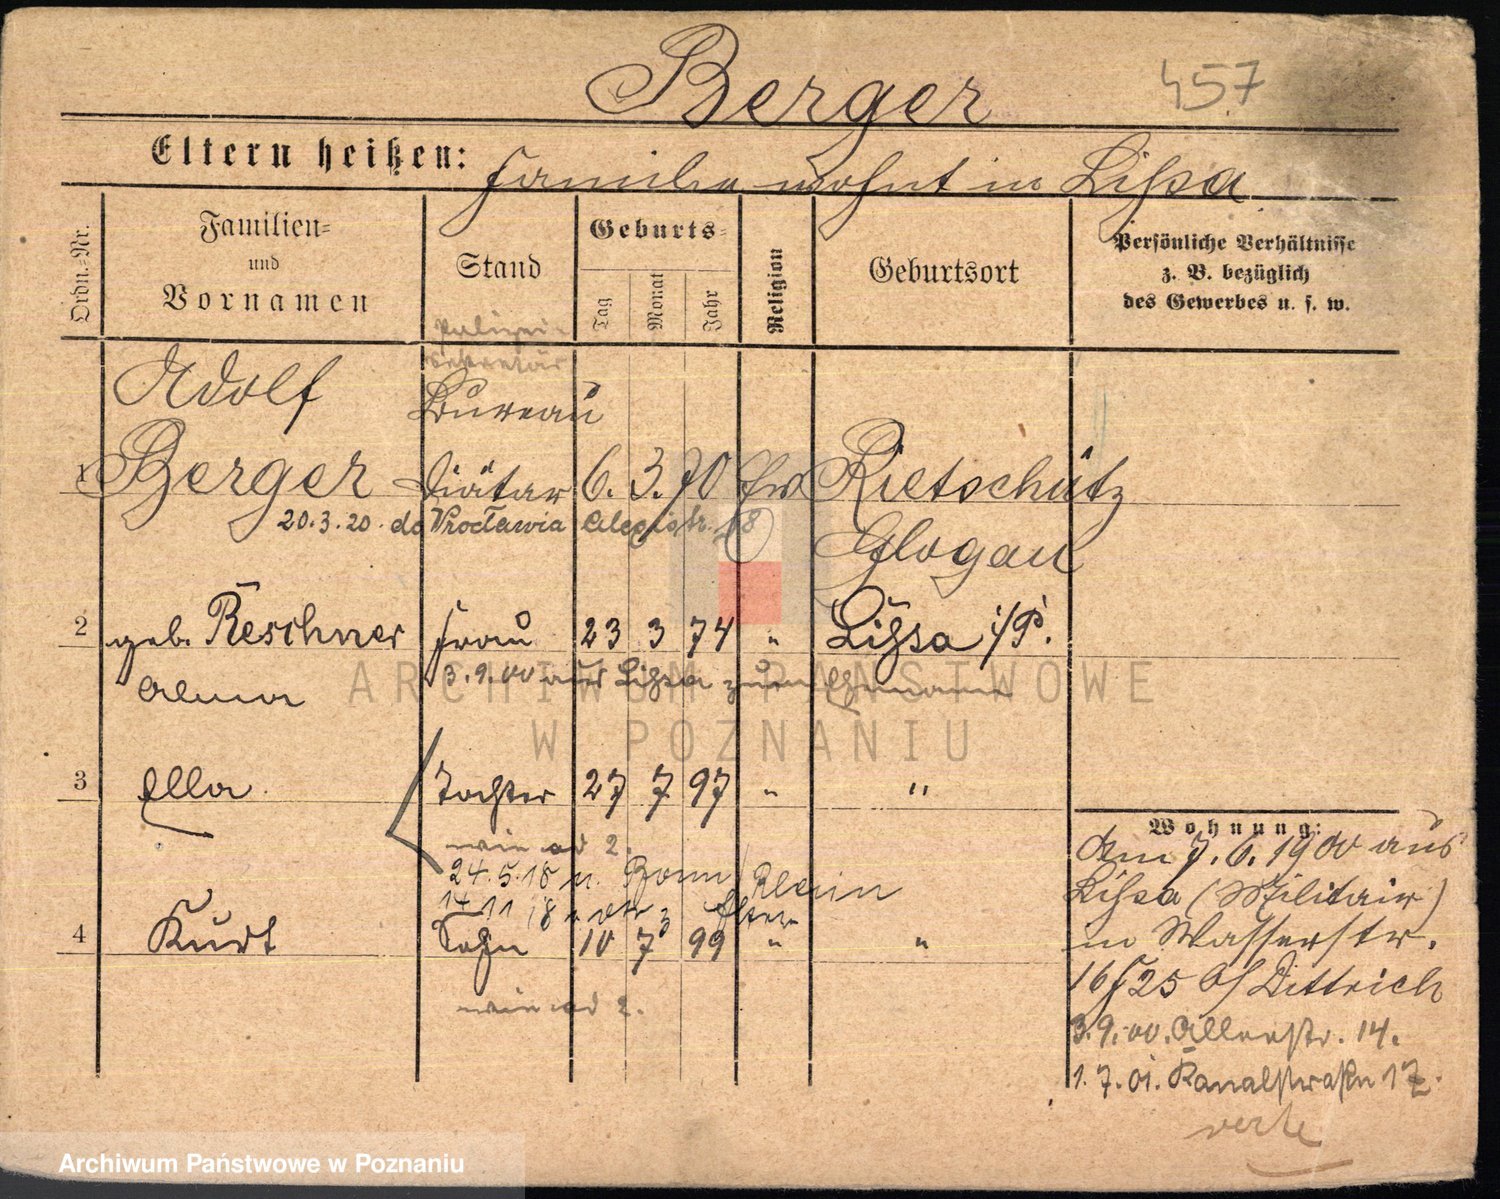 Berger
457
Eltern heißen: Familie wohnt in Lißsa
Ordn.-Nr.
Familien- und Vornamen
Stand
Geburts-
Tag Monat Jahr
Religion
Geburtsort
Persönliche Verhältnisse
z. B. bezüglich
des Gewerbes u. s. w.
Polizei-
sekretär
Adolf Bureau
1 Berger Diätar 6. 3. 70 Ew Rietschütz
20.3.20. do Wrocławia 18 Glogau
2 geb. Reschner Frau 23 3 74 " Lißsa i/P.
Alma 3.9.00 aus Lißsa zum Ehemann
3 Ella Tochter 27 7 97 " "
wie ad 2.
24.5.18 n. Bonn Rhein
14 11 18 v. z Eltern
4 Kurt Sohn 10 7 99 " "
wie ad 2.
Wohnung:
Am 7. 6. 1900 aus
Lißsa (Militair)
in Wasserstr.
16/25 b/ Dittrich
3.9.00. Allerstr. 14.
1.7.01. Kanalstraße 17.
verte
ARCHIWUM PAŃSTWOWE
W POZNANIU
Archiwum Państwowe w Poznaniu